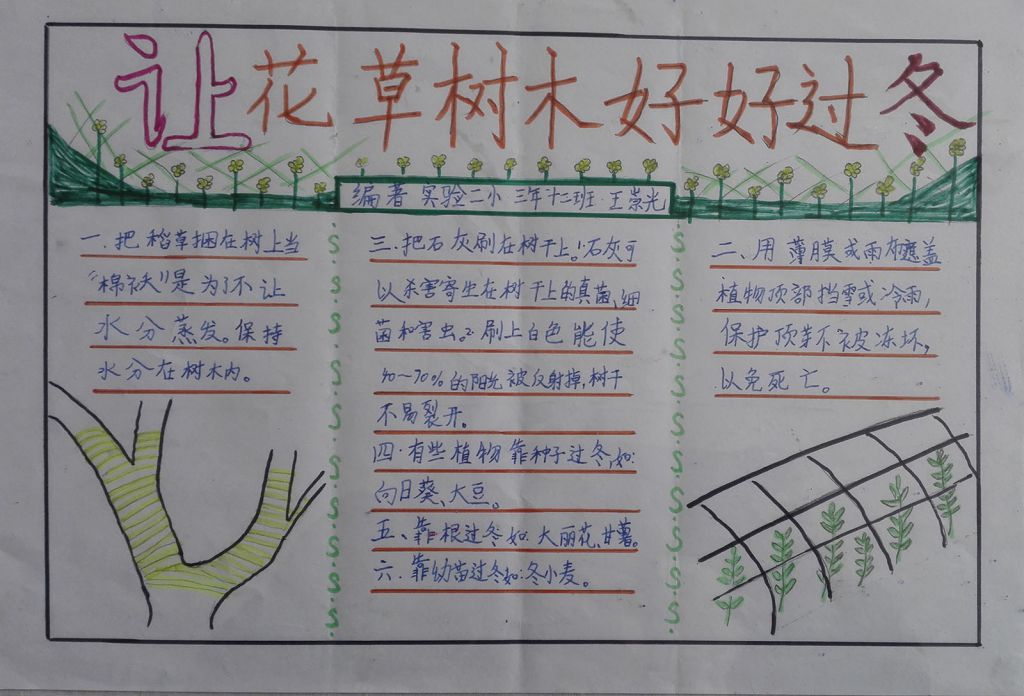 让花草树木好好过冬
编著 实验二小 三年十二班·王崇光
一、把稻草捆在树上当
“棉袄”是为了不让
水分蒸发。保持
水分在树木内。
三、把石灰刷在树干上。1.石灰可
以杀害寄生在树干上的真菌、细
菌和害虫。2.刷上白色能使
40～70%的阳光被反射掉,树干
不易裂开。
四·有些植物靠种子过冬,如:
向日葵、大豆。
五、靠根过冬如:大丽花、甘薯。
六.靠幼苗过冬如:冬小麦。
二、用薄膜或雨布遮盖
植物顶部挡雪或冷雨,
保护顶芽不被冻坏,
以免死亡。